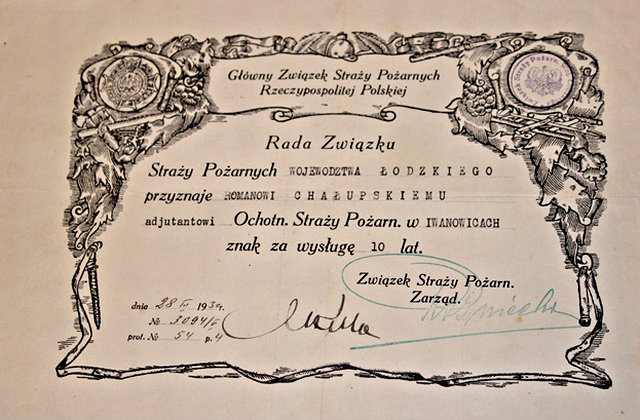 Główny Związek Straży Pożarnych
Rzeczypospolitej Polskiej
Rada Związku
Straży Pożarnych WOJEWODZTWA ŁODZKIEGO
przyznaje ROMANOWI CHAŁUPSKIEMU
adjutantowi Ochotn. Straży Pożarn. w IWANOWICACH
znak za wysługę 10 lat.
Związek Straży Pożarn.
Zarząd.
dnia 28 1939r.
№ 3094/
prot. № 54 p. 4